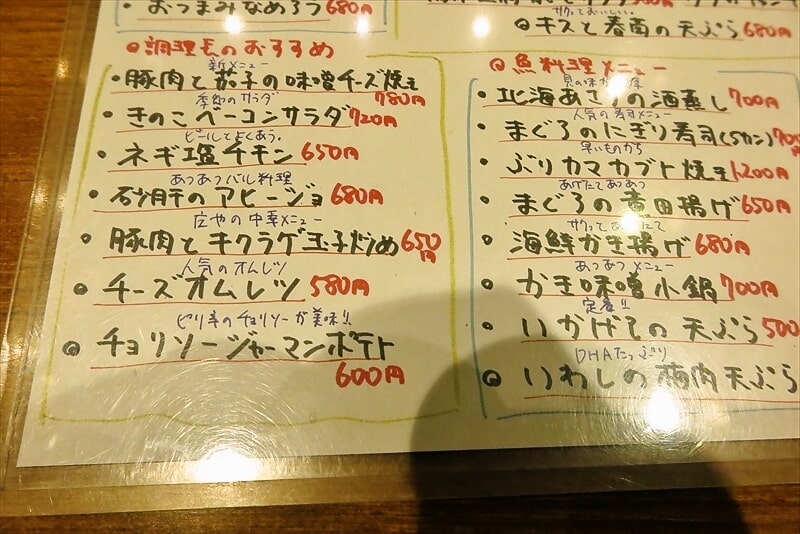 おつまみなめろう 680円
◎調理長のおすすめ
新メニュー
・豚肉と茄子の味噌チーズ焼き
780円
季節のサラダ
・きのこベーコンサラダ720円
ビールでよくあう。
・ネギ塩チキン 650円
あつあつバル料理
・砂肝のアヒージョ 680円
庄やの中華メニュー
・豚肉とキクラゲ玉子炒め 650円
人気のオムレツ
・チーズオムレツ 580円
ピリ辛のチョリソーが美味!!
◎チョリソージャーマンポテト
600円
サクっておいしい。
◎キスと春雨の天ぷら 680円
◎魚料理メニュー
・北海あさりの酒蒸し 700円
人気の寿司メニュー
・まぐろのにぎり寿司(5カン)
早いものがち
・ぶりカマカブト焼き1,200円
あげたてあつあつ
・まぐろの竜田揚げ 650円
・海鮮かき揚げ 680円
あつあつメニュー
・かき味噌小鍋 700円
定番!!
・いかげその天ぷら 500
DHAたっぷり
◎いわしの梅肉天ぷら